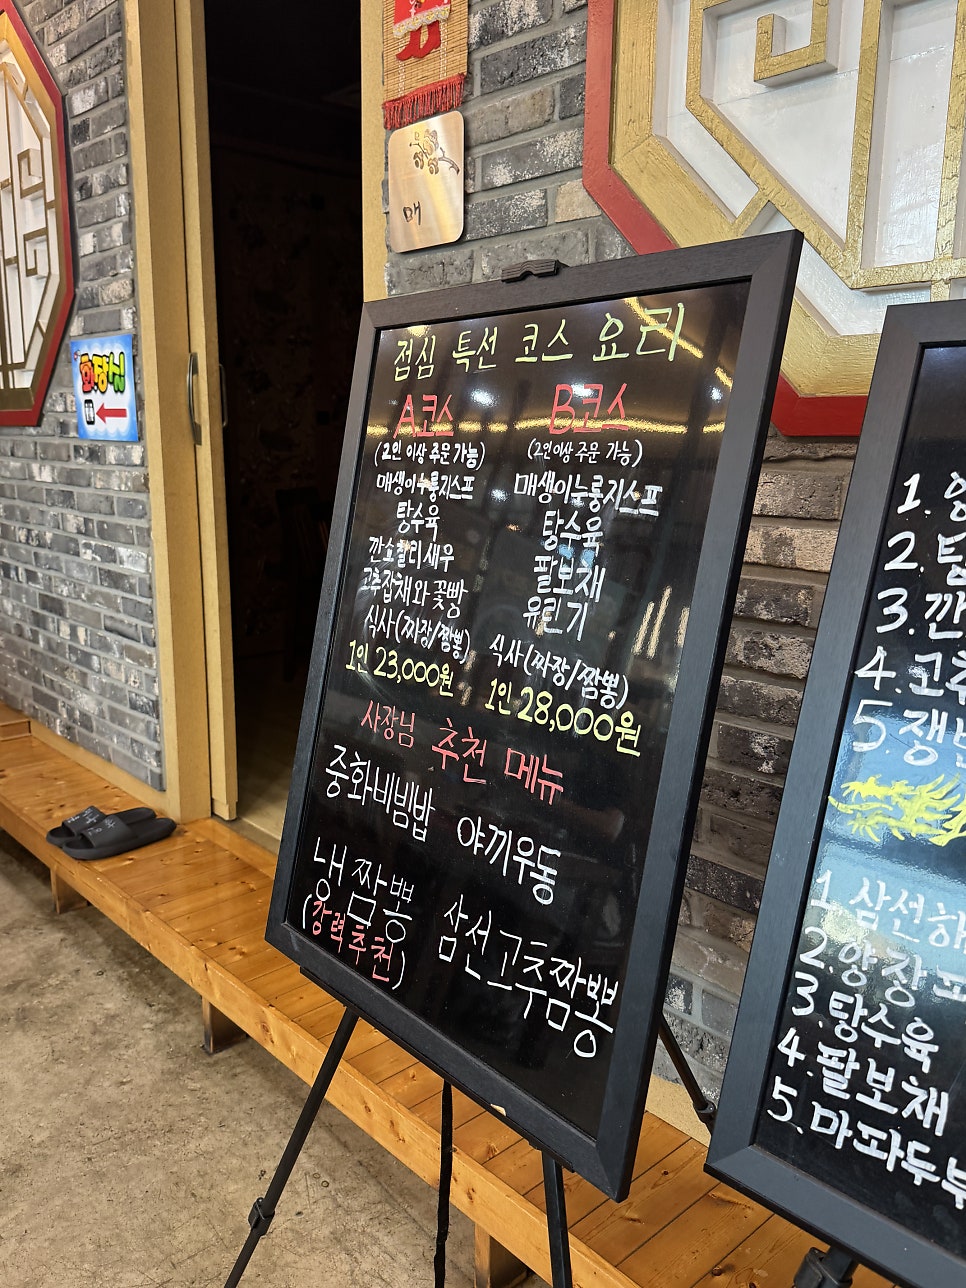 매
화장실
점심 특선 코스 요리
A코스
(2인 이상 주문 가능)
매생이누룽지스프
탕수육
깐쇼칠리새우
고추잡채와 꽃빵
식사(짜장/짬뽕)
1인 23,000원
B코스
(2인이상 주문 가능)
매생이누룽지스프
탕수육
팔보채
유린기
식사(짜장/짬뽕)
1인 28,000원
사장님 추천 메뉴
중화비빔밥
야끼우동
냉짬뽕
(강력추천)
삼선고추짬뽕
1.
2. 탕
3. 깐
4. 고추
5. 쟁반
1. 삼선해
2. 양장피
3. 탕수육
4. 팔보채
5. 마파두부